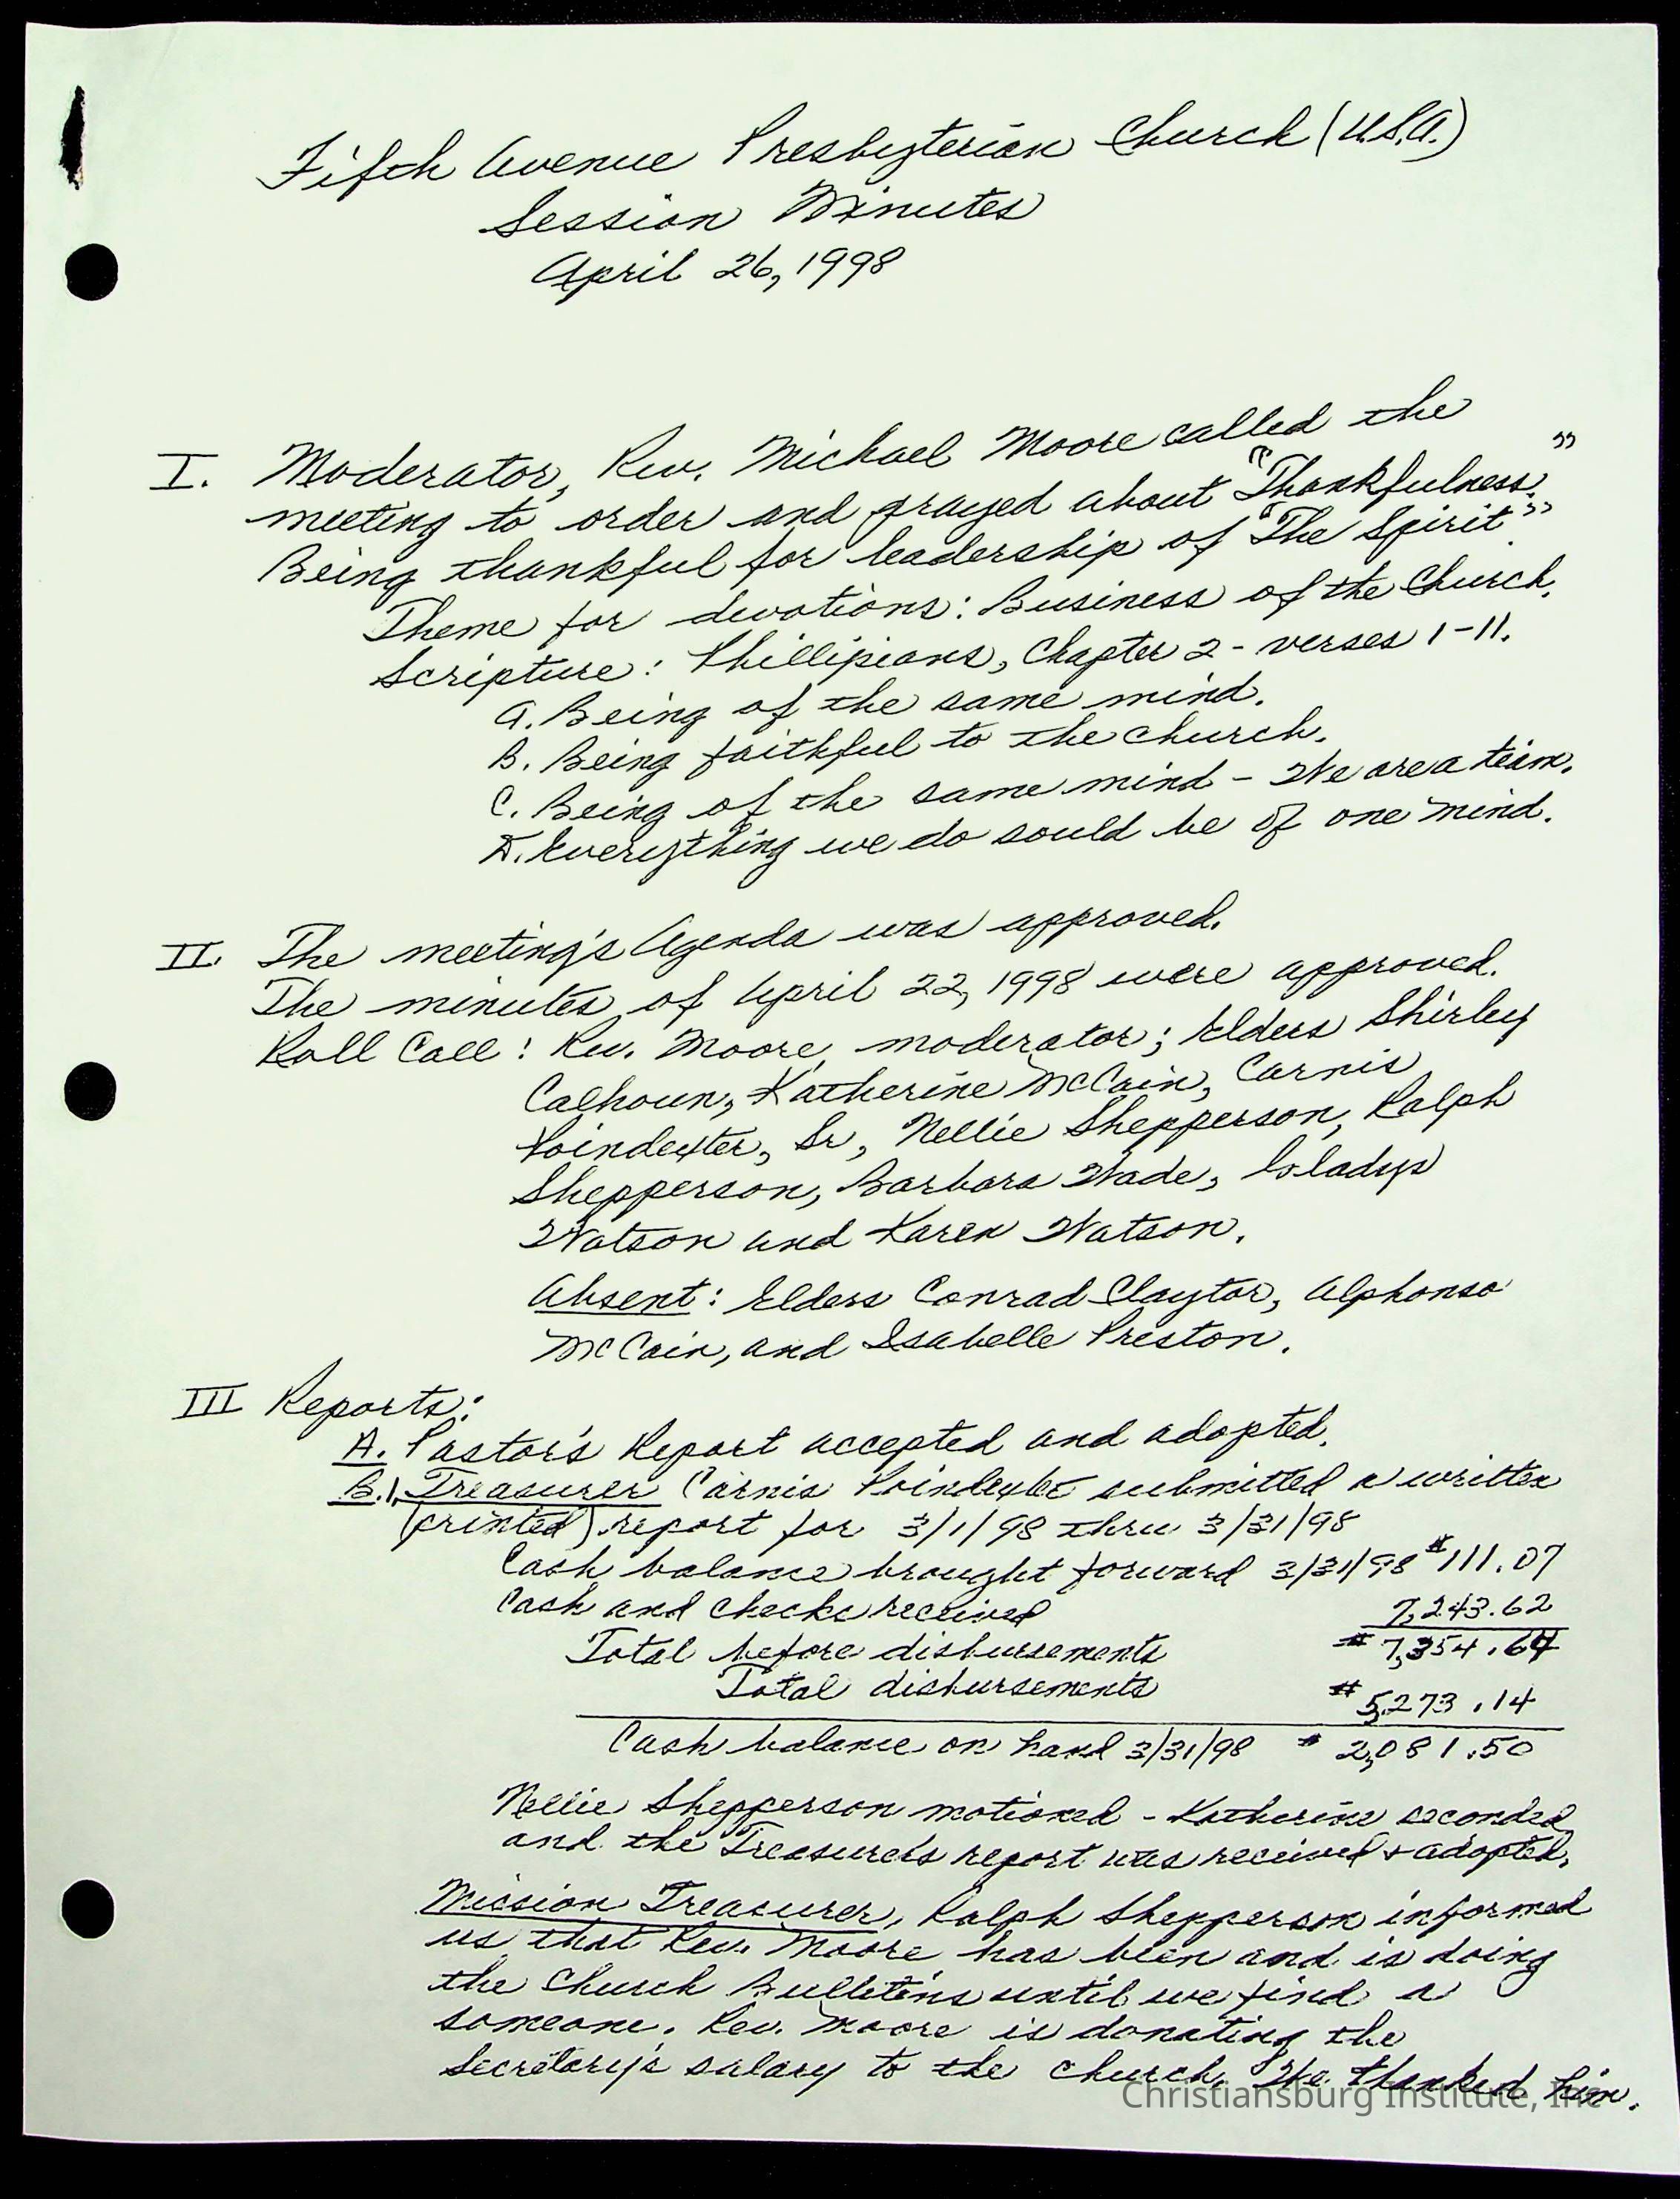 Fifth Avenue Presbyterian Church (U.S.A.)
Session Minutes
April 26, 1998
I. Moderator, Rev. Michael Moore called the
meeting to order and prayed about "Thankfulness."
Being thankful for leadership of "The Spirit".
Theme for devotions: Business of the Church.
Scripture: Phillipians, Chapter 2 - verses 1-11.
A. Being of the same mind.
B. Being faithful to the church.
C. Being of the same mind - We are a team.
D. Everything we do sould be of one mind.
II. The meeting's Agenda was approved.
The minutes of April 22, 1998 were approved.
Roll Call: Rev. Moore, moderator; Elders Shirley
Calhoun, Katherine McCain, Carnis
Poindexter, Sr, Nellie Shepperson, Ralph
Shepperson, Barbara Wade, Gladys
Watson and Karen Watson.
Absent: Elders Conrad Claytor, Alphonso
McCain, and Isabelle Preston.
III Reports:
A. Pastor's Report accepted and adopted.
B.1. Treasurer Carnis Poindexter submitted a written
(printed) report for 3/1/98 thru 3/31/98
Cash balance brought forward 3/31/98 $111.07
Cash and checks received 7,243.62
Total before disbursements $7,354.64
Total disbursements $5,273.14
Cash balance on hand 3/31/98 $2,081.50
Nellie Shepperson motioned - Katherine seconded
and the Treasurer's report was received & adopted.
Mission Treasurer, Ralph Shepperson informed
us that Rev. Moore has been and is doing
the Church Bulletins until we find a
someone. Rev. Moore is donating the
Secretary's salary to the church. We thanked him.
Christiansburg Institute, Inc